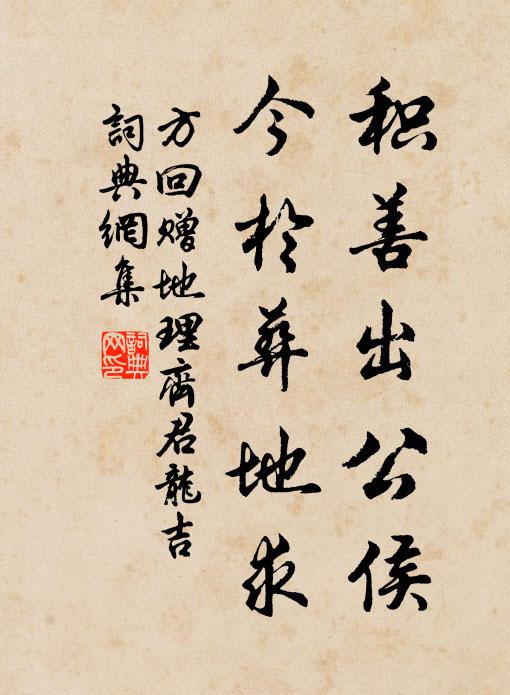 积善出公侯
今於葬地求
方回赠地理齊君龍吉
詞典網集
詞典
网印